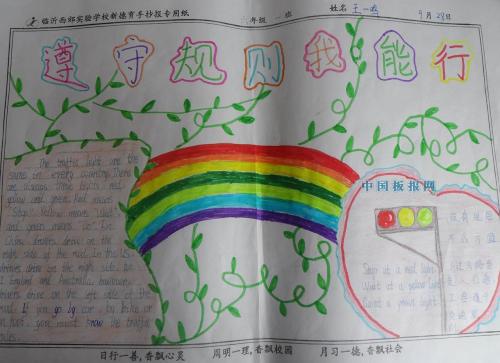 临沂西郊实验学校新德育手抄报专用纸 年级 一班 姓名 王一鸣 9月28日
遵守规则我能行
The traffic light are the
same in every country. There
are always three lights: red,
yellow and green. Red means
"Stop". Yellow means "Wait"
and green means "Go". In
China, drivers drive on the
right side of the road. In the US
drivers drive on the right side too.
In England and Australia, however,
drivers drive on the left side of the
road. If you go by car, by bike or
on foot, you must know the traffic
rules.
中国板报网
Stop at a red light.
Wait at a yellow light.
日行一善,香飘心灵 周明一理,香飘校园 月习一德,香飘社会